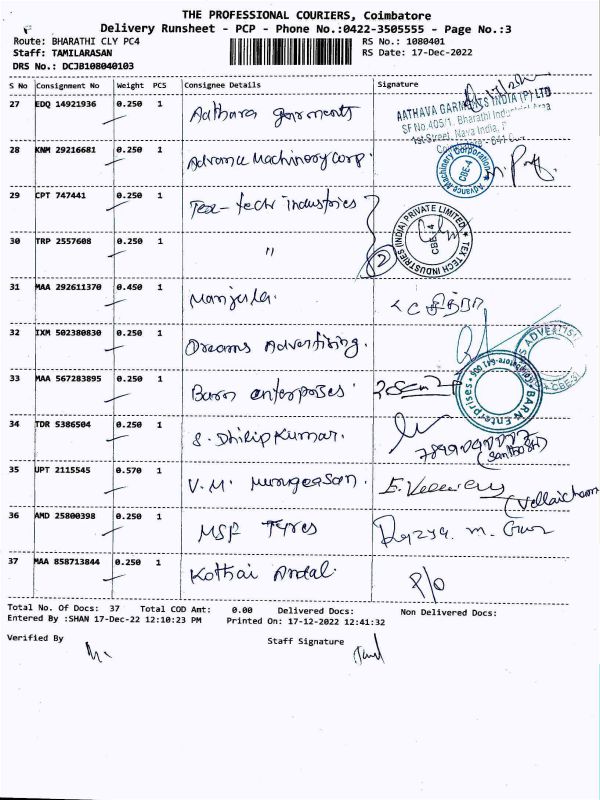 THE PROFESSIONAL COURIERS, Coimbatore
Delivery Runsheet - PCP - Phone No.:0422-3505555 - Page No.:3
Route: BHARATHI CLY PC4
RS No.: 1080401
Staff: TAMILARASAN
RS Date: 17-Dec-2022
DRS No.: DCJB108040103
S No Consignment No Weight PCS Consignee Details Signature
27 EDQ 14921936 0.250 1 Aathava garments
AATHAVA GARMENTS INDIA (P) LTD
SF No.405/1, Bharathi Industrial Area
1st Street, Nava India,
28 KNM 29216681 0.250 1 Advance Machinery Corp.
Advance Machinery Corporation
CBE-4
29 CPT 747441 0.250 1 Tex-tech industries
TEX TECH INDUSTRIES (INDIA) PRIVATE LIMITED
CBE-4
30 TRP 2557608 0.250 1 "
2
31 MAA 292611370 0.450 1 Manjula.
32 IXM 502380830 0.250 1 Dreams Advertising.
33 MAA 567283895 0.250 1 Barn enterprises
BARN Enterprises
Coimbatore-641 006
34 TDR 5386504 0.250 1 S. Dhilip Kumar.
(Santhosh)
35 UPT 2115545 0.570 1 V.M. Murugeasan.
36 AMD 25800398 0.250 1 MSF Tyres
37 MAA 858713844 0.250 1 Kothai Andal.
P/o
Total No. Of Docs: 37 Total COD Amt: 0.00 Delivered Docs: Non Delivered Docs:
Entered By :SHAN 17-Dec-22 12:10:23 PM Printed On: 17-12-2022 12:41:32
Verified By
Staff Signature